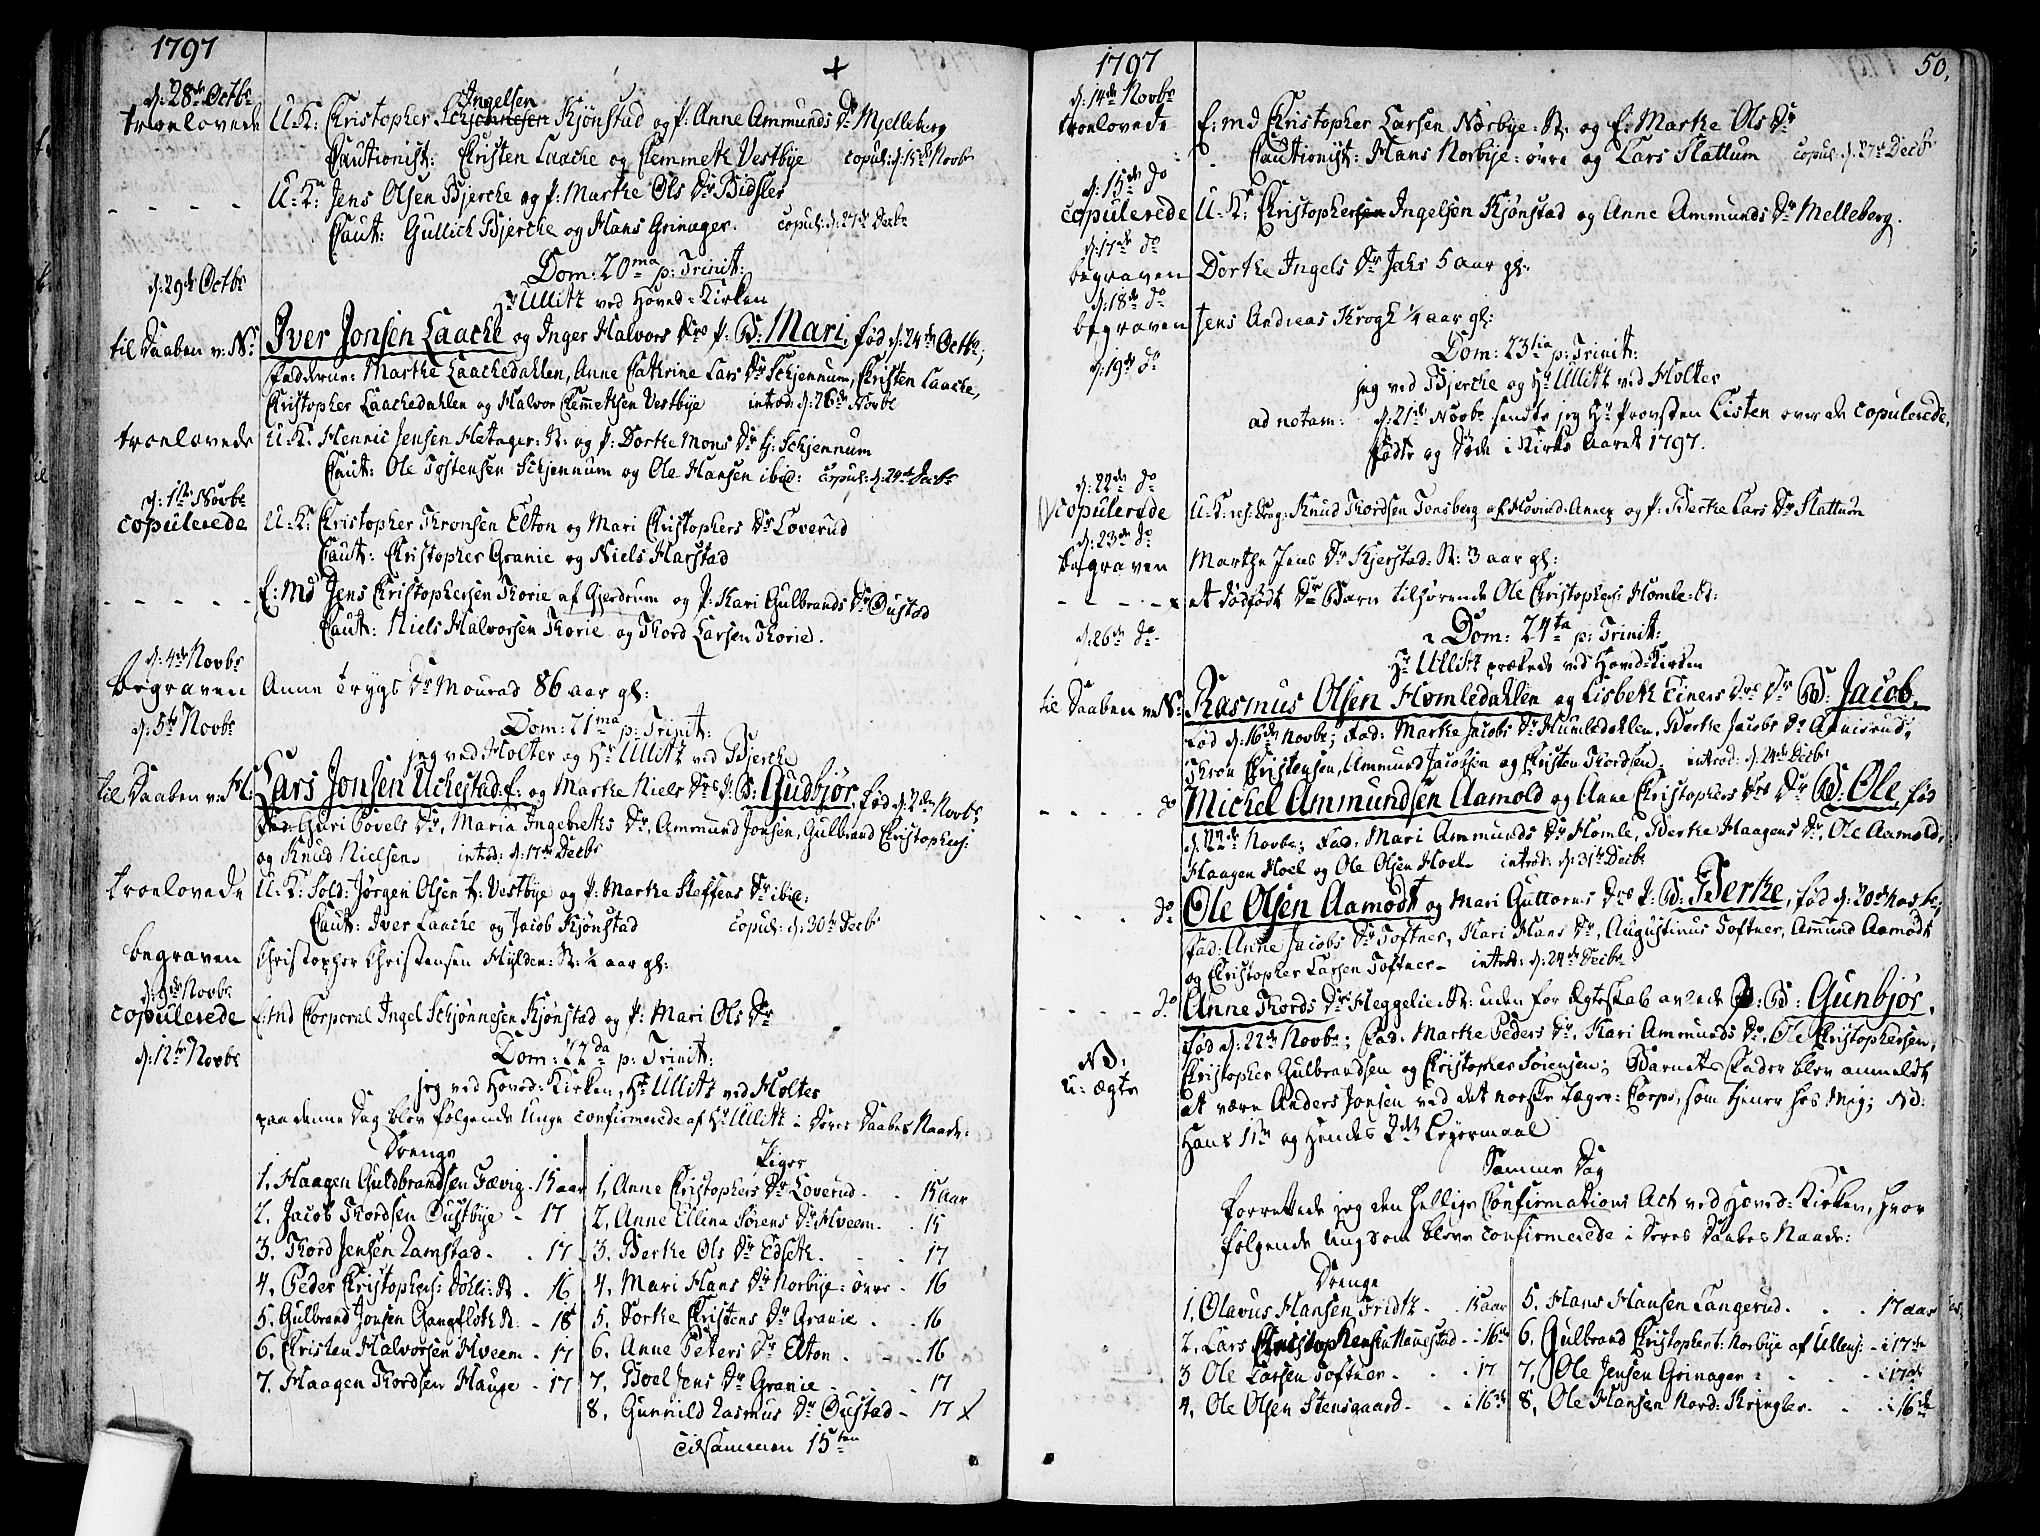 1797
+
d: 28de Octbr
troelovede U: K: Christopher Schjønnesen Ingelsen Kjønstad og P: Anne Ammunds Dr Mjelleberg
Cautionist: Christen Laache og Clemmeth Vestbye copul: d: 15de Novbr
- - - - U: K: Jens Olsen Bjerche og P: Marthe Ols Dr Bidsler
Caut: Gullich Bjerche og Hans Grinager. copul: d: 27de Decbr
d: 29de Octbr
Dom: 20ma p: Trinit:
Hr Ullitz ved Hoved-Kirken
til Daaben v: N: Iver Jonsen Laache og Inger Halvors Dr P: B: Mari, fød d: 24de Octbr;
Fadderne: Marthe Laachedahlen, Anne Cathrine Lars Dr Schjennum, Christen Laache,
Christopher Laachedahlen og Halvor Clemmetsen Vestbye introd: d: 26de Novbr
troelovede U: K: Henric Jensen Hetager: N: og P: Dorthe Mons Dr Schjennum
Caut: Ole Tostensen Schjennum og Ole Hansen ibid: copul: d: 29de Decbr
d: 1ste Novbr
copulerede U: K: Christopher Thronsen Elton og Mari Christophers Dr Loverud
Caut: Christopher Granie og Niels Harstad
- - - - - E: Md Jens Christophersen Thorie af Gjerdrum og P: Kari Gulbrands Dr Oustad
Caut: Niels Halvorsen Thorie og Thord Larsen Thorie.
d: 4de Novbr
begraven Anne Trygs Dr Mourad 86 aar gl:
d: 5te Novbr
Dom: 21ma p: Trinit:
jeg ved Holter og Hr Ullitz ved Bjerche
til Daaben v: H: Lars Jonsen Uchestad: E: og Marthe Niels Dr P: B: Gudbjør, fød d: 2den Novbr,
Fad: Guri Povels Dr, Maria Ingebreths Dr, Ammund Jonsen, Gulbrand Christophers:
og Knud Nielsen. introd: d: 17de Decbr
troelovede U: K: Sold: Jørgen Olsen Vestbye og P: Marthe Steffens Dr ibid:
Caut: Iver Laache og Jacob Kjønstad copul: d: 30te Decbr
begraven Christopher Christensen Hylden: N: ½ aar gl:
d: 9de Novbr
copulerede E: Md Corporal Ingel Schjønnesen Kjønstad og P: Mari Ols Dr
d: 12te Novbr
Dom: 22da p: Trinit:
jeg ved Hoved-Kirken, Hr Ullitz ved Holter
paa denne Dag blev følgende Unge confirmerede af Hr Ullitz i Deres Daabes Naade:
Drenge
1. Haagen Guldbrandsen Fævig - 15 aar
2. Jacob Thordsen Oustbye - 17
3. Thord Jensen Ramstad - 17
4. Peder Christophers: Døhli: N - 16
5. Gulbrand Jonsen Gangfloth N: - 18
6. Christen Halvorsen Hveem - 17
7. Haagen Thordsen Hauge - 17
Piger
1, Anne Christophers Dr Loverud - 15 Aar
2, Anne Elina Sørens Dr Hveem - 15
3. Berthe Ols Dr Edseth - 17
4. Mari Hans Dr Norbye: øvre - 16
5. Dorthe Christens Dr Granie - 16
6. Anne Peters Dr Elton - 16
7, Boel Jens Dr Granie - 17
8, Gunnild Rasmus Dr Oustad - 17
tilsammen 15ten
1797
50.
d: 14de Novbr
troelovede E: Md Christopher Larsen Norbye: N: og E: Marthe Ols Dr
Cautionist: Hans Norbye: øvre og Lars Slattum copul: d: 27de Decbr
d: 15de do
copulerede U: K: Christophersen Ingelsen Kjønstad og Anne Ammunds Dr Melleberg.
d: 17de do
begraven Dorthe Ingels Dr Jahr 5 aar gl:
d: 18de do
begraven Jens Andreas Krogh ¼ aar gl:
d: 19de do
Dom: 23tia p: Trinit:
jeg ved Bjerche og Hr Ullitz ved Holter
ad notam: d: 21de Novbr sendte jeg Hr Provsten Listen over de copulerede,
Fødte og Døde i Kirke Aaret 1797.
d: 22de do
copulerede U: K: Drag: Knud Thordsen Tonsberg af Hovind-Annex og P: Berthe Lars Dr Slattum
d: 23de do
begraven Marthe Jens Dr Kjerstad: N: 3 aar gl:
- - - - et dødfødt Dr Barn tilhørende Ole Christophers: Homle: N:
d: 26de do
Dom: 24ta p: Trinit:
Hr Ullitz prækede ved Hoved-Kirken
til Daaben v: N: Rasmus Olsen Homledahlen og Lisbeth Einers Dr B: Jacob,
fød d: 16de Novbr; Fad: Marthe Jacobs Dr Humledahlen, Berthe Jacobs Dr
Thron Christensen, Ammund Jacobsen og Christen Thordsen. introd: d: 24de Decbr
- - - - do Michel Ammundsen Aamold og Anne Christophers Dr B: Ole, fød
d: 22de Novbr; Fad: Mari Ammunds Dr Homle, Berthe Haagens Dr, Ole Aamold,
Haagen Hoel og Ole Olsen Hoel introd: d: 31te Decbr
- - - - do Ole Olsen Aamodt og Mari Guttorms Dr P: B: Berthe, fød d: 20de Novbr;
Fad: Anne Jacobs Dr Toftner, Kari Hans Dr, Augustinus Toftner, Amund Aamodt
og Christopher Larsen Toftner introd: d: 24de Decbr
- - - - do Anne Thords Dr Heggelie: N: uden for Ægteskab avlede B: Gunbjør,
fød d: 22de Novbr; Fad: Marthe Peders Dr, Kari Ammunds Dr, Ole Christophersen,
NB.
U: ægte
Christopher Gulbrandsen og Christopher Sørensen; Barnets Fader blev anmeldt
at være Anders Jonsen ved det norske Jæger-Corps, som tiener hos Mig; NB:
Hans 1ste og Hendes 2det Leyermaal
Samme Dag
Forrettede jeg den hellige Confirmations Act ved Hoved-Kirken, hvor
følgende Ungdom bleve confirmerede i Deres Daabes Naade:
Drenge
1. Olavus Hansen Fridtz - 15 aar
2. Lars Christophersen Hannestad - i 16de
3 Ole Larsen Toftner - 17
4. Ole Olsen Stensgaard - i 16de
5. Hans Hansen Langerud - 17 aar
6. Gulbrand Christophers: Norbye af Ullens: - i 17de
7, Ole Jensen Grinager - i 17de
8, Ole Hansen Nord: Kringler - i 16de